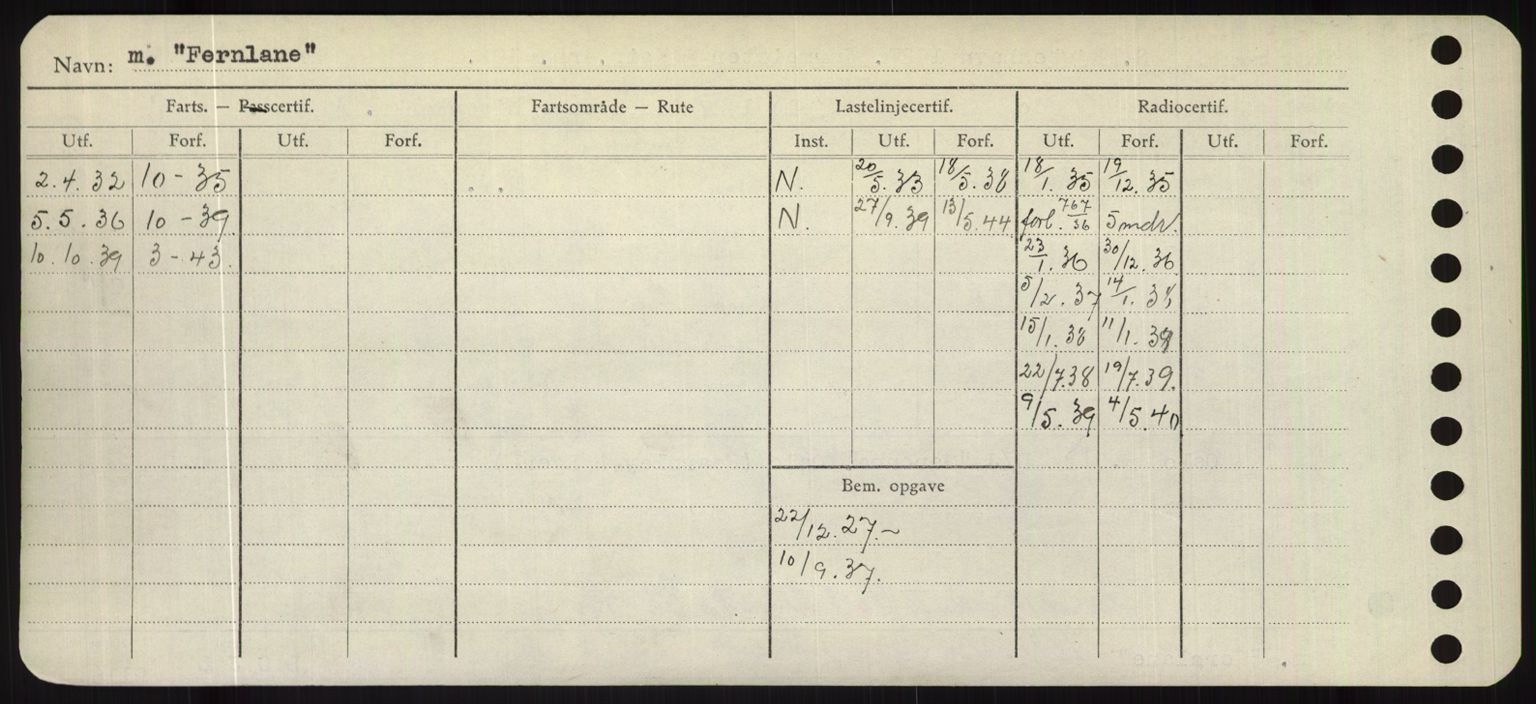 Navn: m. "Fernlane"
Farts. — Passcertif. Fartsområde — Rute Lastelinjecertif. Radiocertif.
Utf. Forf. Utf. Forf. Inst. Utf. Forf. Utf. Forf. Utf. Forf.
2.4.32 10-35 N. 20/5.33 18/5.38 18/1.35 19/12.35
5.5.36 10-39. N. 27/9.39 13/5.44 forl. 767/36 5 mdr.
10.10.39 3-43. 23/1.36 30/12.36
5/2.37 14/1.38
15/1.38 11/1.39
22/7.38 19/7.39.
9/5.39 4/5.40
Bem. opgave
22/12.27.~
10/9.37.